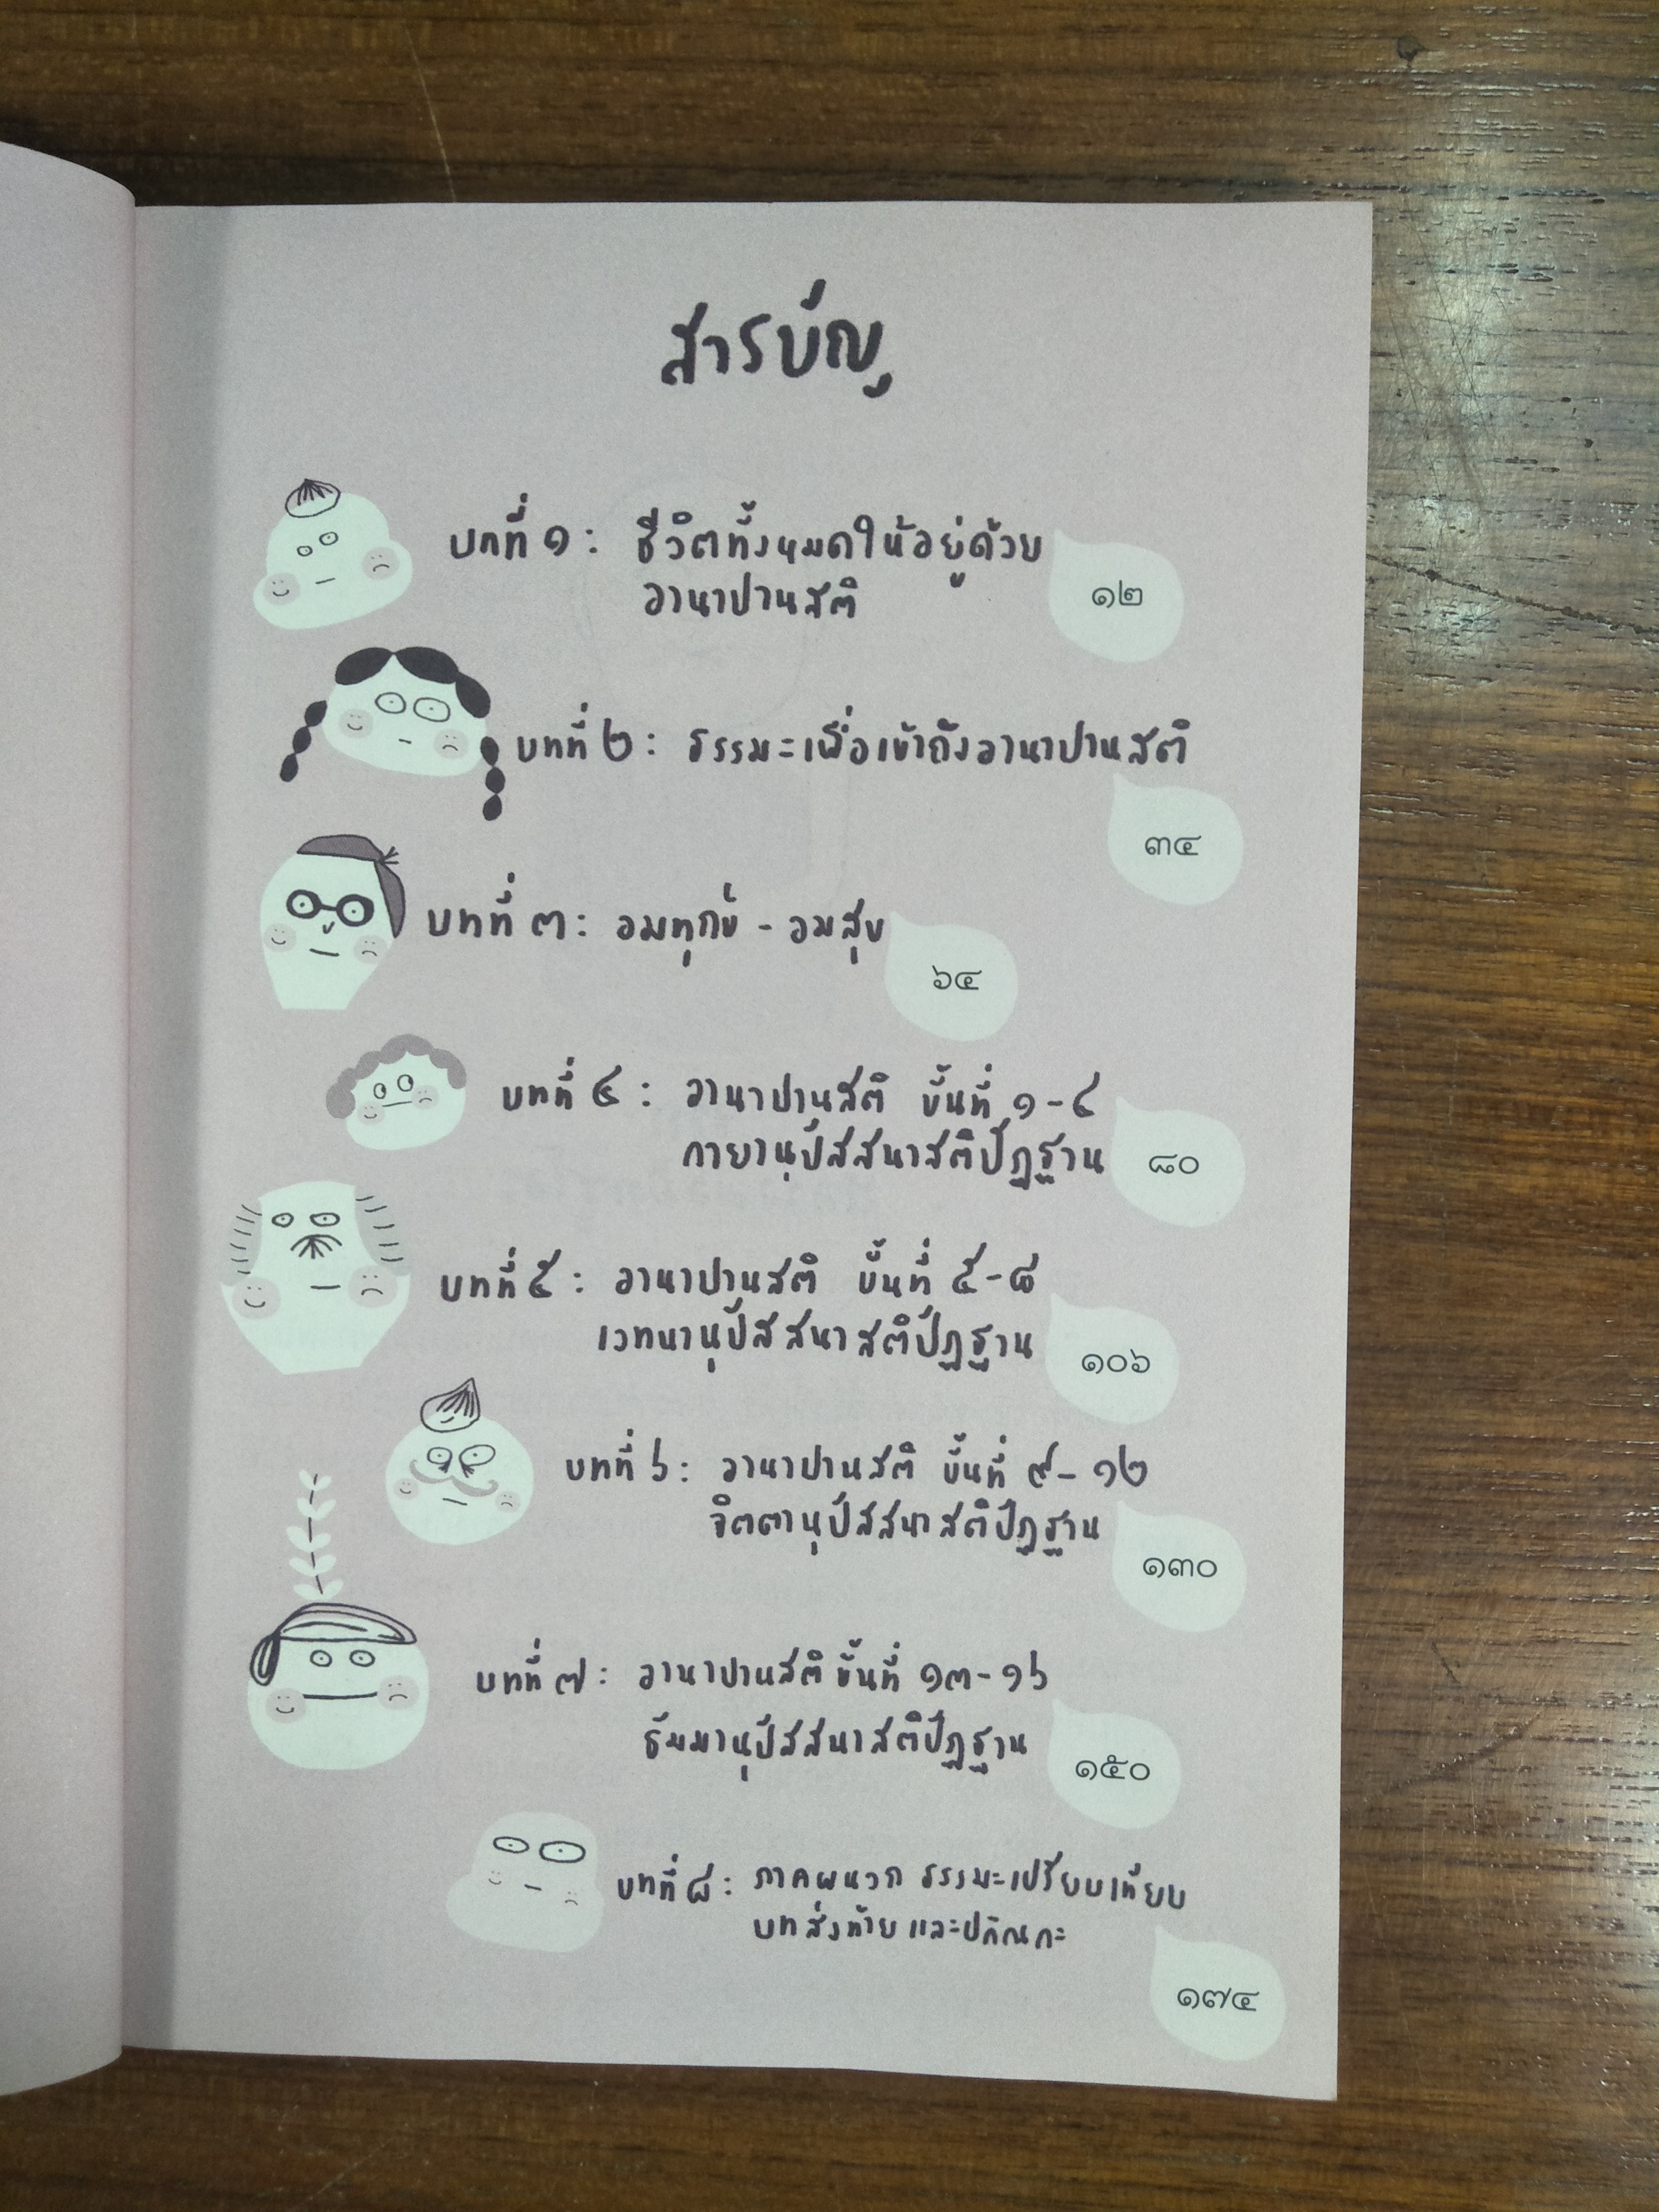 สารบัญ
บทที่ ๑ : ชีวิตทั้งหมดให้อยู่ด้วย
อานาปานสติ
๑๒
บทที่ ๒ : ธรรมะเพื่อเข้าถึงอานาปานสติ
๓๔
บทที่ ๓ : อมทุกข์ - อมสุข
๖๔
บทที่ ๔ : อานาปานสติ ขั้นที่ ๑-๔
กายานุปัสสนาสติปัฏฐาน
๘๐
บทที่ ๕ : อานาปานสติ ขั้นที่ ๕-๘
เวทนานุปัสสนาสติปัฏฐาน
๑๐๖
บทที่ ๖ : อานาปานสติ ขั้นที่ ๙-๑๒
จิตตานุปัสสนาสติปัฏฐาน
๑๓๐
บทที่ ๗ : อานาปานสติ ขั้นที่ ๑๓-๑๖
ธัมมานุปัสสนาสติปัฏฐาน
๑๕๐
บทที่ ๘ : ภาคผนวก ธรรมะเปรียบเทียบ
บทส่งท้าย และปกิณกะ
๑๗๔